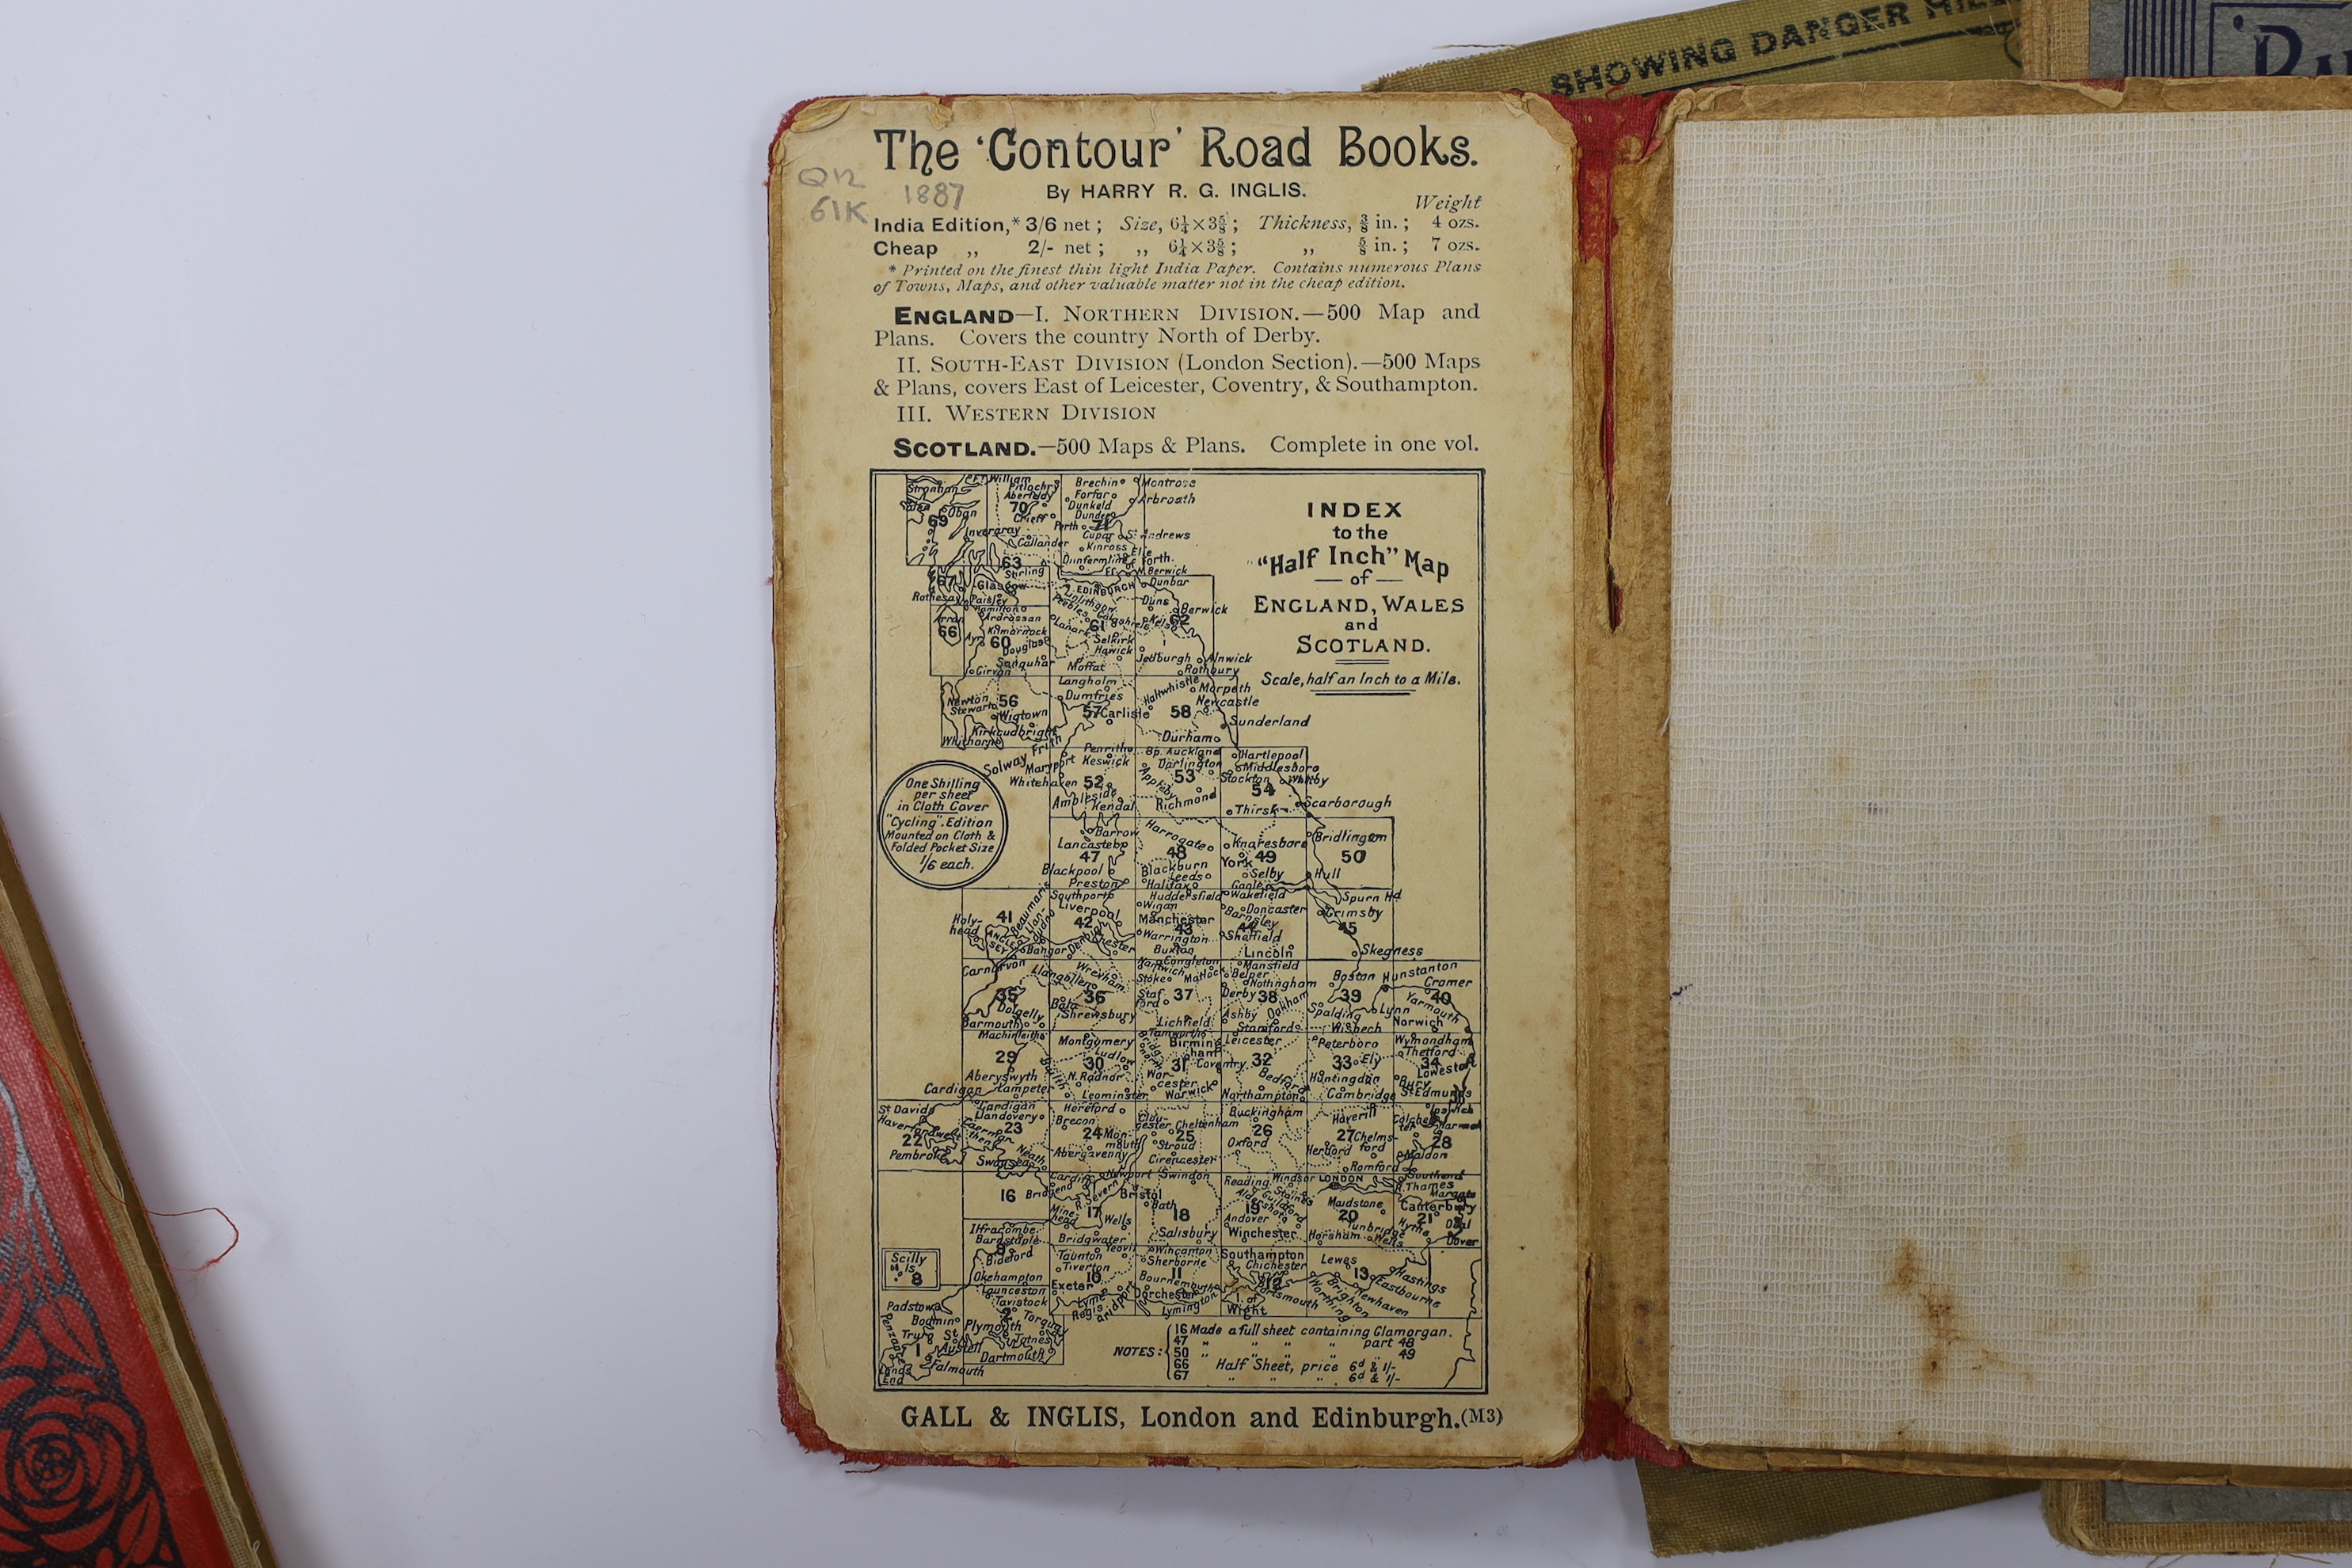 SHOWING DANGER
The 'Contour' Road Books.
Q12
61K
1887
By HARRY R. G. INGLIS.
Weight
India Edition,* 3/6 net ; Size, 6¼×3⅝ ; Thickness, ⅜ in. ; 4 ozs.
Cheap ,, 2/- net ; ,, 6¼×3⅝ ; ,, ⅝ in. ; 7 ozs.
* Printed on the finest thin light India Paper. Contains numerous Plans
of Towns, Maps, and other valuable matter not in the cheap edition.
ENGLAND—I. NORTHERN DIVISION.—500 Map and
Plans. Covers the country North of Derby.
II. SOUTH-EAST DIVISION (London Section).—500 Maps
& Plans, covers East of Leicester, Coventry, & Southampton.
III. WESTERN DIVISION
SCOTLAND.—500 Maps & Plans. Complete in one vol.
INDEX
to the
"Half Inch" Map
—of—
ENGLAND, WALES
and
SCOTLAND.
Scale, half an Inch to a Mile.
Strontian
William
Pitlochry
Aberfeldy
Brechin
Montrose
Forfar
Arbroath
Dunkeld
Dundee
70
Oban
69
Crieff
Perth
71
Inveraray
Cupar
St Andrews
Callander
Kinross
Elie
Dunfermline
Forth
63
Stirling
N. Berwick
67
Glasgow
EDINBURGH
Dunbar
Rothesay
Paisley
Linlithgow
Duns
Hamilton
Peebles
Berwick
Arran
Ardrossan
Lanark
61
Galashiels
Kelso
62
66
Kilmarnock
Selkirk
Ayr
60
Douglas
Hawick
Jedburgh
Alnwick
Sanquhar
Moffat
Rothbury
Girvan
Langholm
Haltwhistle
Morpeth
Newton
Stewart
56
Dumfries
Newcastle
Wigtown
57
Carlisle
58
Sunderland
Kirkcudbright
Whithorn
Durham
Solway Frith
Penrith
Bp. Auckland
Hartlepool
Maryport
Keswick
Darlington
Middlesboro
Whitehaven
52
Appleby
53
Stockton
Whitby
54
Ambleside
Kendal
Richmond
Thirsk
Scarborough
One Shilling
per sheet
in Cloth Cover
"Cycling" Edition
Mounted on Cloth &
Folded Pocket Size
1/6 each.
Barrow
Harrogate
Knaresboro
Bridlington
Lancaster
47
48
York
49
50
Blackpool
Blackburn
Leeds
Selby
Hull
Preston
Halifax
Goole
Southport
Huddersfield
Wakefield
Spurn Hd
Holy-
head
41
Beaumaris
Liverpool
Wigan
Doncaster
Grimsby
42
Manchester
Barnsley
ANGLE
SEY
43
44
45
Bangor
Denbigh
Chester
Warrington
Sheffield
Buxton
Lincoln
Skegness
Carnarvon
Llangollen
Wrexham
Nantwich
Congleton
Mansfield
Boston
Hunstanton
Stoke
Matlock
Belper
Cromer
35
36
Staf
ford
37
Nottingham
Derby
38
39
40
Bala
Yarmouth
Dolgelly
Shrewsbury
Ashby
Oakham
Spalding
Lynn
Norwich
Barmouth
Lichfield
Stamford
Wisbech
Machynlleths
Tamworth
Montgomery
Bridg
north
Birming
ham
Leicester
Peterboro
Wymondham
Ludlow
Thetford
29
30
31
Coventry
32
33
Ely
34
Lowestoft
Builth
N. Radnor
Wor-
cester
Bedford
Huntingdon
Bury
St Edmunds
Aberyswyth
Warwick
Cardigan
Lampeter
Leominster
Northampton
Cambridge
St Davids
Cardigan
Hereford
Buckingham
Haverill
Ipswich
Haverfordwest
Llandovery
Brecon
Glou-
cester
Cheltenham
Colches
ter
Harwich
22
Caermar
then
23
24
Mon-
mouth
25
26
27
Chelms-
ford
28
Stroud
Oxford
Hertford
Pembroke
Neath
Abergavenny
Cirencester
Maldon
Swansea
Romford
Cardiff
Newport
Swindon
Reading
Windsor
LONDON
Southend
R. Thames
16
Bridgend
R Severn
Bristol
Staines
Margate
Bath
Aldershot
Guildford
Maidstone
Canterbury
Mine
head
17
Wells
18
19
20
21
Deal
Andover
Tunbridge
Wells
Hythe
Ilfracombe
Bridgwater
Salisbury
Winchester
Horsham
Dover
Barnstaple
9
Bideford
Taunton
Yeovil
Wincanton
Southampton
Lewes
Scilly
Is
8
Tiverton
Sherborne
Chichester
13
Hastings
Okehampton
10
11
12
Eastbourne
Exeter
Bournemouth
Portsmouth
Brighton
Newhaven
Launceston
Lyme
Regis
Bridport
Dorchester
Lymington
I. of
Wight
Worthing
Padstow
Tavistock
Bodmin
2
Torquay
Penzance
Truro
St
Austell
Plymouth
Totnes
1
Dartmouth
Lands
End
Falmouth
NOTES:
16 Made a full sheet containing Glamorgan.
47 " " " " part 48
50 " " " " " 49
66 Half Sheet, price 6d & 1/-
67 " " " 6d & 1/-
GALL & INGLIS, London and Edinburgh. (M3)